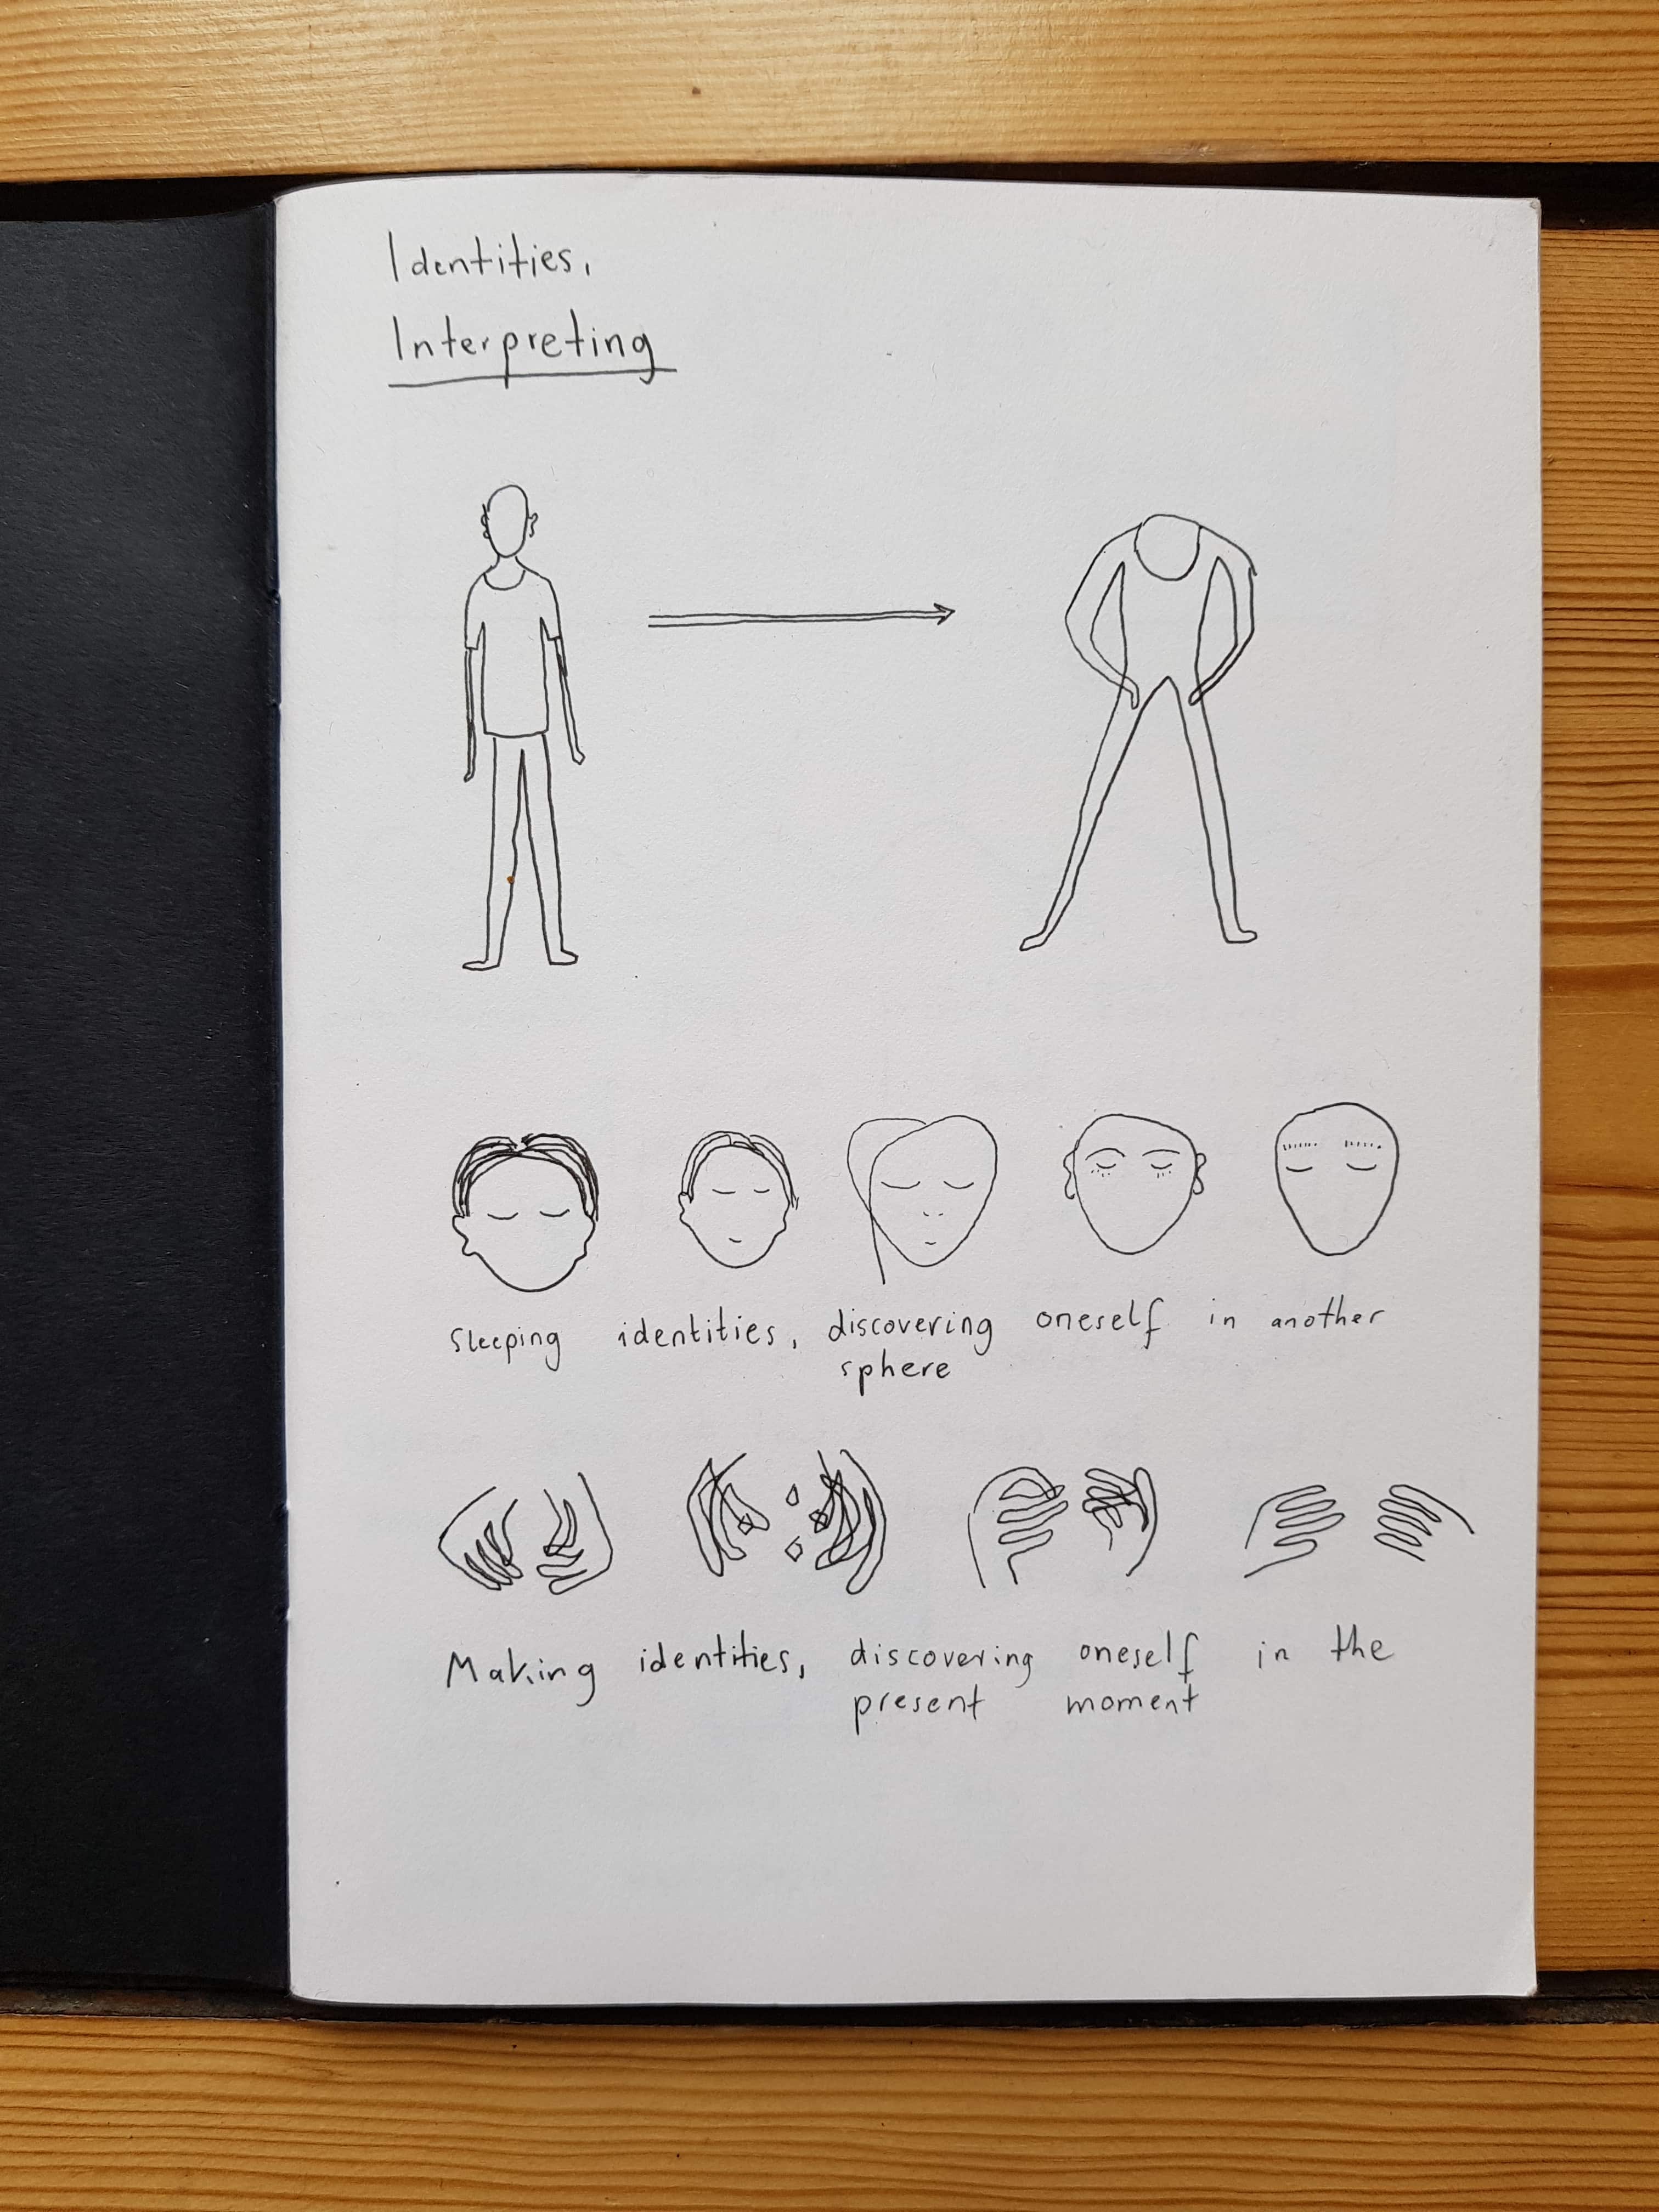 Identities,
Interpreting
Sleeping identities, discovering oneself in another
sphere
Making identities, discovering oneself in the
present moment